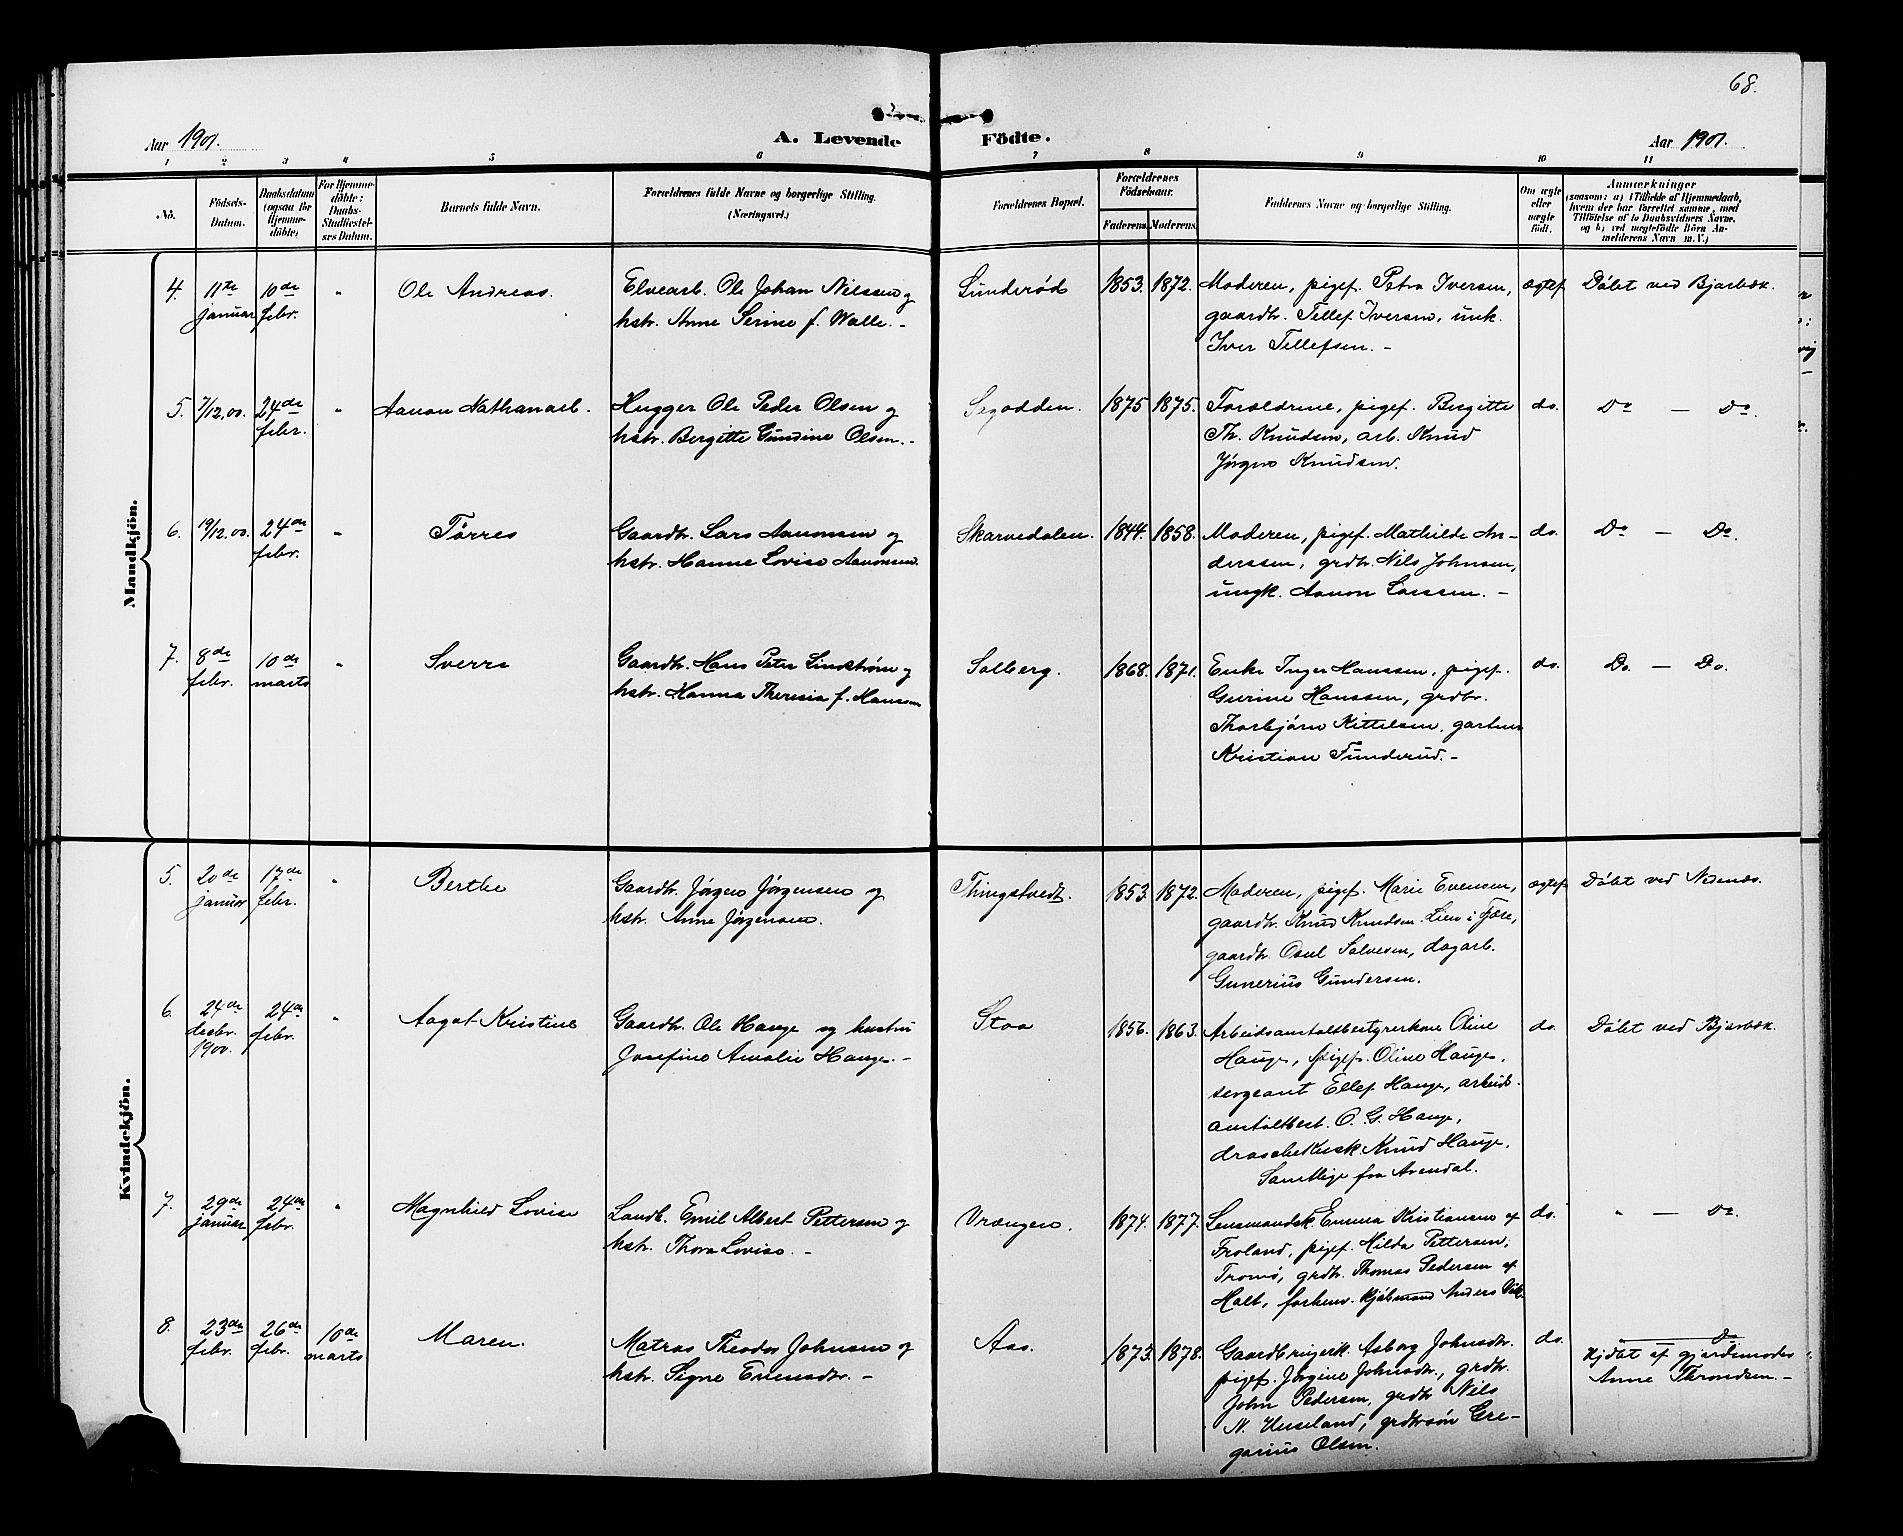 68.
Aar 1901.
A. Levende Födte.
Aar 1901.
1 2 3 4 5 6 7 8 9 10 11
No.
Födsels-
Datum.
Daabsdatum
(ogsaa för
Hjemme-
döbte)
For Hjemme-
döbte:
Daabs-
Stadfæstel-
ses Datum.
Barnets fulde Navn.
Forældrenes fulde Navne og borgerlige Stilling.
(Næringsvei.)
Forældrenes Bopæl.
Forældrenes
Födselsaar.
Faderens. Moderens.
Faddernes Navne og borgerlige Stilling.
Om ægte
eller
uægte
født.
Anmærkninger
(saasom: a) i Tilfælde af Hjemmedaab,
hvem der har forrettet samme, med
Tilföielse af to Daabsvidners Navne,
og b) ved uægtefödte Börn An-
melderens Navn m. V.)
Mandkjön.
4. 11te januar 10de febr. " Ole Andreas.
Elvearb. Ole Johan Nilssen og
hstr. Anne Serine f. Walle.-
Sunderød 1853. 1872.
Moderen, pigef. Petra Iversen,
gaardbr. Tellef Iversen, unk.
Iver Tellefsen.-
ægtef. Døbt ved Bjorbæk.
5. 7/12.00. 24de febr. " Aanon Nathanael.
Hugger Ole Peder Olsen og
hstr. Bergitte Gundine Olsen.-
Segodden. 1875 1875.
Forældrene, pigef. Birgitte
Th. Knudsen, arb. Knud
Jörgen Knudsen.
do. Do — Do.
6. 19/12.00. 24de febr. " Tørres
Gaardb. Lars Aanonsen og
hstr. Hanne Lovise Aanonsen.
Skarvedalen. 1844. 1858.
Moderen, pigef. Mathilde An-
derssen, grdbr. Nils Johnsen,
ungk. Aanon Larssen.-
do. Do — Do.
7. 8de febr. 10de marts " Sverre
Gaardb. Hans Peter Lindstrøm og
hstr. Hanna Theresia f. Hanssen
Solberg. 1868. 1871.
Enke Inger Hanssen, pigef.
Gurine Hanssen, grdbr.
Thorbjørn Kittelsen, gartner
Kristian Funderud.-
do. Do. — Do.
Kvindekjön.
5. 20de januar 17de febr. " Berthe
Gaardb. Jørgen Jørgensen og
hstr. Anne Jørgensen.
Thingstvedt. 1853. 1872.
Moderen, pigef. Marie Evensen,
gaardbr. Knud Knudsen Lien i Fjære,
gaardbr. Osul Salvesen, dagarb.
Gunerius Gundersen.
ægtef. Døbt ved Nedenæs.
6. 24de decbr. 1900. 24de febr. " Aagot Kristine
Gaardb. Ole Hauge og hustru
Josefine Amalie Hauge.-
Stoa 1856. 1863.
Arbeidsanstaltbestyrerkone Oline
Hauge, pigef. Oline Hauge,
sergeant Ellef Hauge, arbeids-
anstaltbest. O. G. Hauge,
droschekusk Knud Hauge,
Samtlige fra Arendal.
do. Døbt ved Bjorbæk.
7. 29de januar 24de febr. " Magnhild Lovise
Landb. Emil Albert Pettersen og
hstr. Thora Lovise.-
Vrængen. 1874. 1877.
Lensmandsk. Emma Kristiansen af
Froland, pigef. Hilda Pettersen,
Tromø, grdbr. Thomas Pedersen af
Holt, forhenv. Hjólmand Anders
do. " — Do.
8. 23de febr. 26de febr. 10de marts Maren.
Matros Theodor Johnsen og
hstr. Signe Evensdtr.-
Aas. 1873. 1878.
Gaardbrugerk. Asborg Johnsdtr.
pigef. Jørgine Johnsdtr., grdbr.
John Pedersen, grdbr Nils
N. Usseland, grdbrsøn Gre-
garius Olsen.
do. Do
Hjdbt af gjordemoder
Anne Throndsen.-